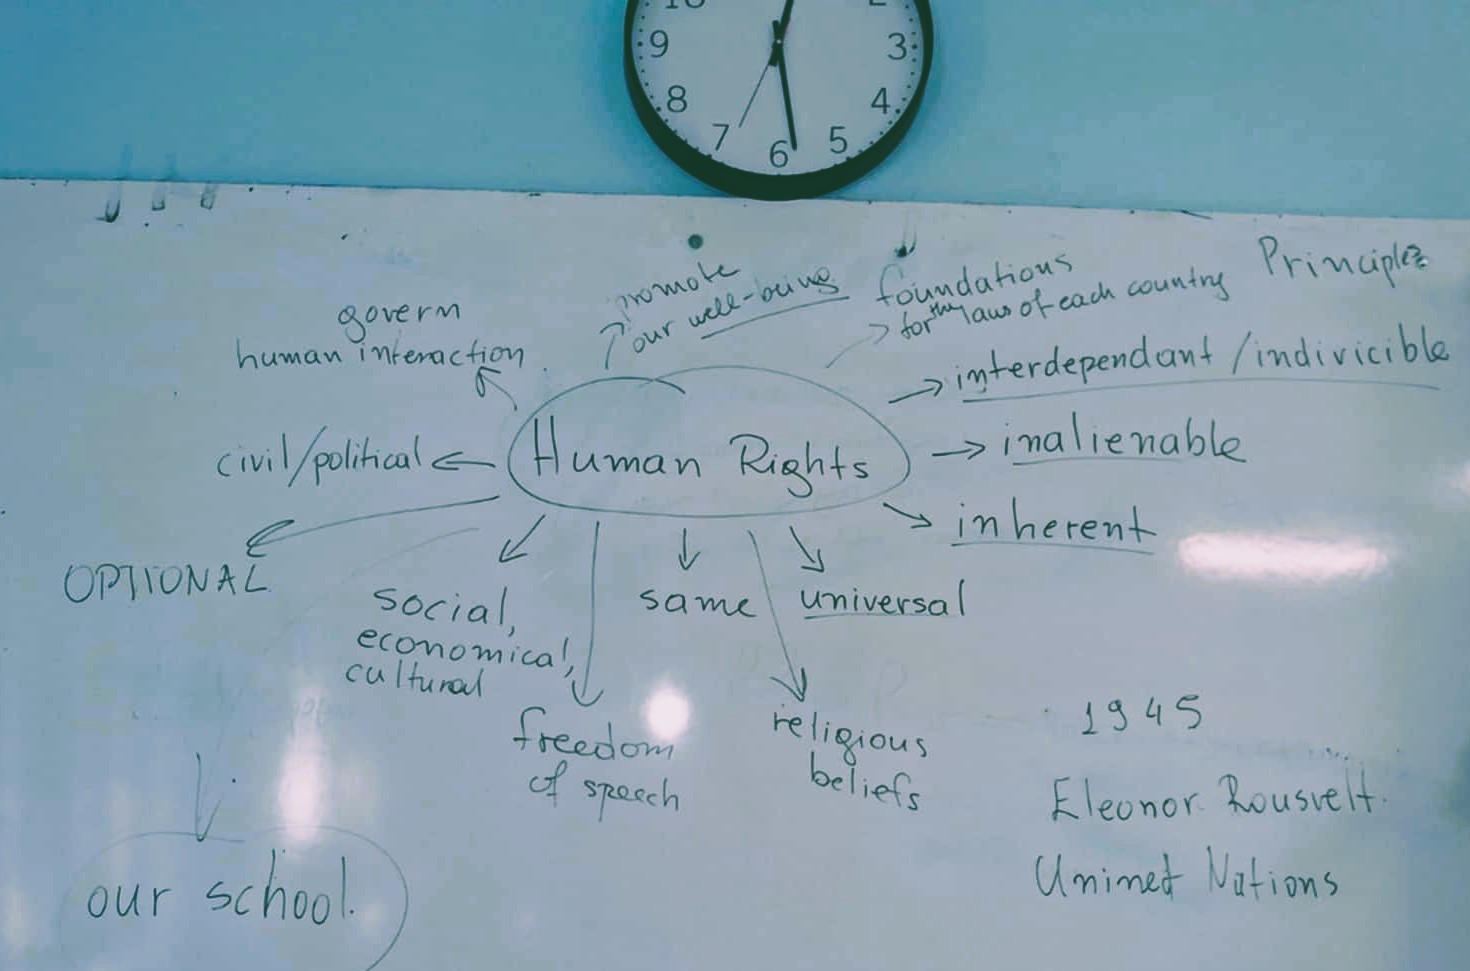 10
2
9
3
8
4
7
6
5
promote
our well-being
foundations
for the laws of each country
Principles
govern
human interaction
interdependant / indivicible
civil/political
Human Rights
inalienable
inherent
OPTIONAL
social,
economical,
cultural
same
universal
freedom
of speech
religious
beliefs
1945
Eleonor Rousvelt.
Unined Nations
our school.